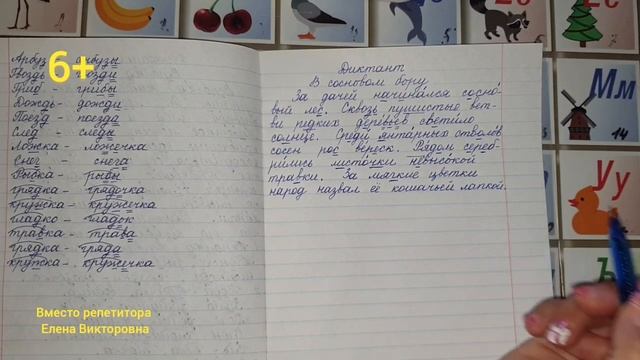 Арбуз - арбузы
Гвоздь - гвозди
Гриб - грибы
Дождь - дожди
Поезд - поезда
След - следы
Ложка - ложечка
Снег - снега
Рыбка - рыбы
грядка - грядочка
кружка - кружечка
гладко - гладок
травка - трава
грядка - гряда
кружка - кружечка
6+
Вместо репетитора
Елена Викторовна
Диктант
В сосновом бору.
За дачей начинался сосно-
вый лес. Сквозь пушистые вет-
ви редких деревьев светило
солнце. Среди янтарных стволов
сосен рос вереск. Рядом сереб-
рились листочки невысокой
травки. За мягкие цветки
народ назвал её кошачьей лапкой.
Мм
14
Уу
Ъ